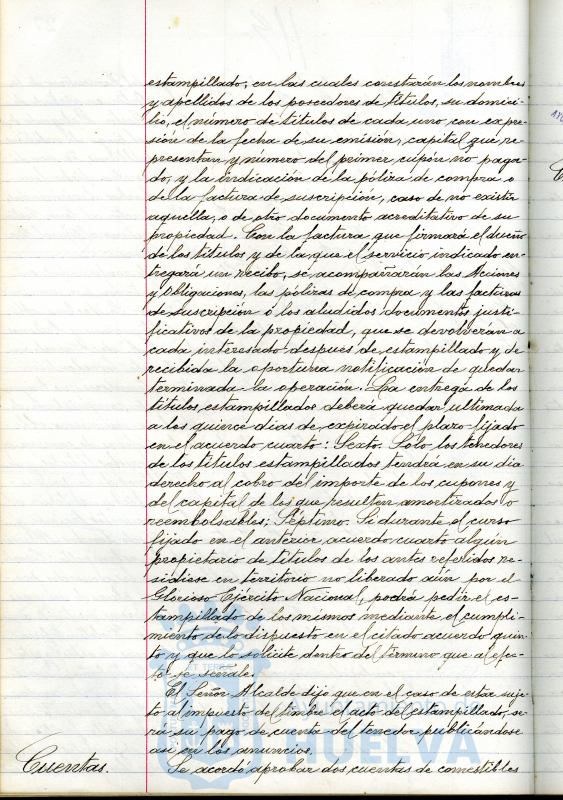 estampillado; en las cuales constarán los nombres
y apellidos de los poseedores de títulos, su domici-
lio, el número de títulos de cada uno con expre-
sión de la fecha de su emisión, capital que re-
presentan y número del primer cupón no paga-
do; y la indicación de la póliza de compra o
de la factura de suscripción, caso de no existir
aquella, o de otro documento acreditativo de su
propiedad. Con la factura que firmará el dueño
de los títulos y de la que el servicio indicado en-
tregará un recibo, se acompañarán las Acciones
y Obligaciones, las pólizas de compra y las facturas
de suscripción o los aludidos documentos justi-
ficativos de la propiedad, que se devolverán a
cada interesado después de estampillado y de
recibida la oportuna notificación de quedar
terminada la operación. La entrega de los
títulos estampillados deberá quedar ultimada
a los quince días de expirado el plazo fijado
en el acuerdo cuarto: Sexto. Sólo los tenedores
de los títulos estampillados tendrá en su día
derecho al cobro del importe de los cupones y
del capital de los que resulten amortizados o
reembolsables; Séptimo. Si durante el curso
fijado en el anterior acuerdo cuarto algún
propietario de títulos de los antes referidos re-
sidiese en territorio no liberado aún por el
Glorioso Ejército Nacional, podrá pedir el es-
tampillado de los mismos mediante el cumpli-
miento de lo dispuesto en el citado acuerdo quin-
to y que lo solicite dentro del término que al efec-
to se señale.
El Señor Alcalde dijo que en el caso de estar suje-
to al impuesto del timbre el acto del estampillado, se-
rá su pago de cuenta del tenedor, publicándose
así en los anuncios.
Cuentas.
Se acordó aprobar dos cuentas de comestibles
HUELVA